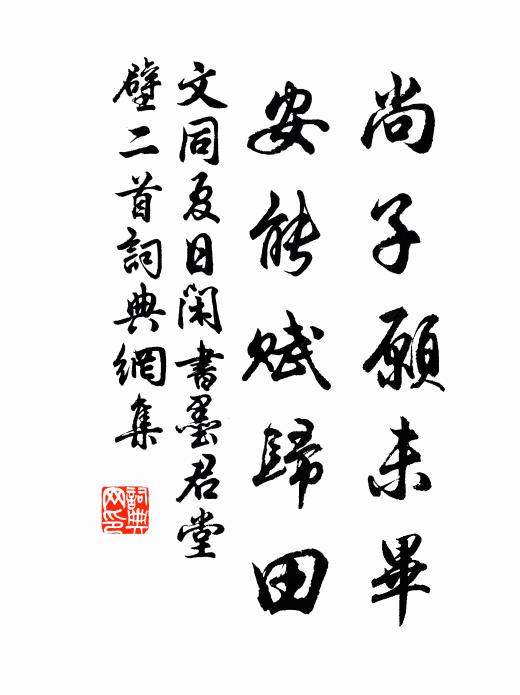 尚子願未畢
安能賦歸田
文同夏日閑書墨君堂
壁二首詞典網集
詞典
网印